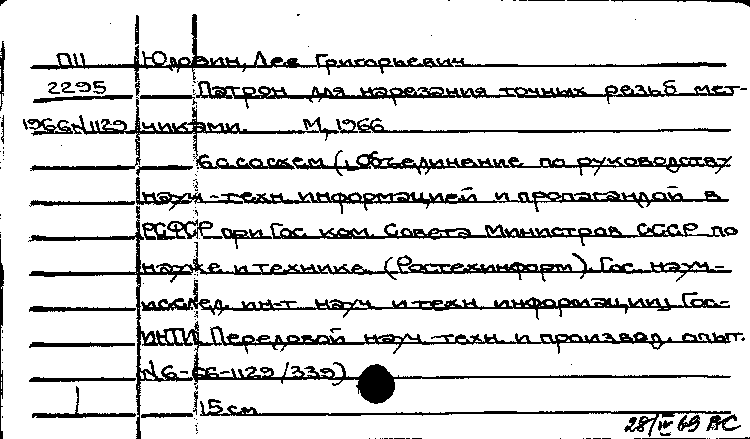 П11 Юдовин, Лев Григорьевич
2295 Патрон для нарезания точных резьб мет-
1966N1129 чиками. М, 1966
6 с со схем (Объединение по руководству
науч-техн. информацией и пропагандой в
РСФСР при Гос ком. Совета Министров СССР по
науке и технике. (Ростехинформ). Гос. науч-
исслед. ин-т науч и техн. информации, Гос-
ИНТИ Передовой науч-техн. и производ. опыт.
N 6-66-1129/339)
15 см
28/IV 69 АС